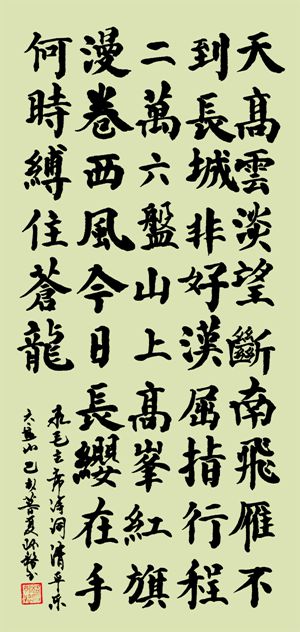 天髙雲淡望斷南飛雁不
到長城非好漢屈指行程
二萬六盤山上高峯紅旗
漫卷西風今日長纓在手
何時縛住蒼龍
毛主席詩詞清平乐
六盤山